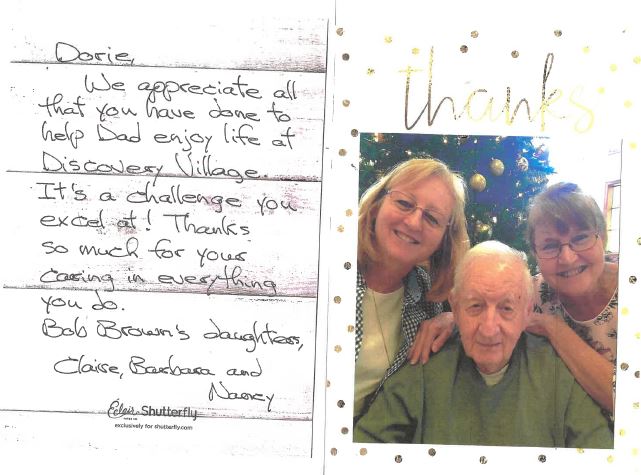 Dorie,
We appreciate all
that you have done to
help Dad enjoy life at
Discovery Village.
It's a challenge you
excel at! Thanks
so much for your
caring in everything
you do.
Bob Brown's daughters,
Claire, Barbara and
Nancy
Shutterfly
exclusively for shutterfly.com
thanks